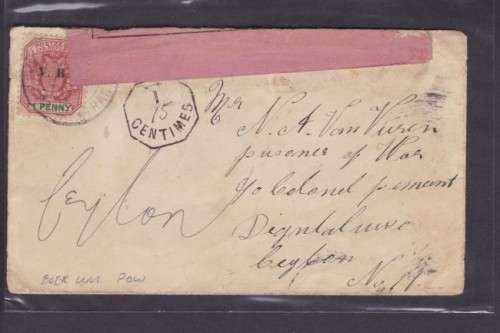 V. R.
1 PENNY
T
15
CENTIMES
Mr
N. A. Van Vuren
prisoner of War
Diyatalawa
Ceylon
Ceylon
BOER WAR POW